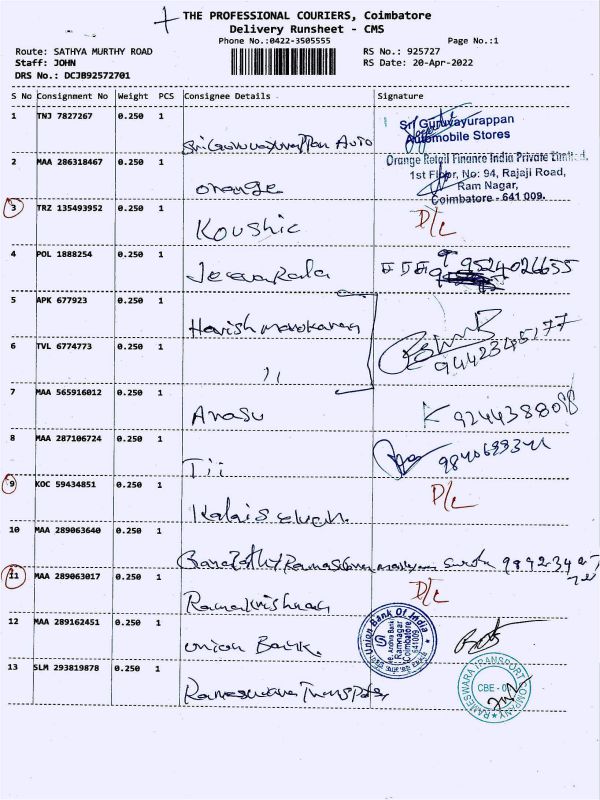 THE PROFESSIONAL COURIERS, Coimbatore
Delivery Runsheet - CMS
Phone No.:0422-3505555
Page No.:1
Route: SATHYA MURTHY ROAD
RS No.: 925727
Staff: JOHN
RS Date: 20-Apr-2022
DRS No.: DCJB92572701
S No Consignment No Weight PCS Consignee Details Signature
1 TNJ 7827267 0.250 1
Sri Guruvayurappan Auto
Sri Guruvayurappan
Automobile Stores
2 MAA 286318467 0.250 1
orange
Orange Retail Finance India Private Limited.
1st Floor, No: 94, Rajaji Road,
Ram Nagar,
Coimbatore - 641 009.
3 TRZ 135493952 0.250 1
Koushic D/L
4 POL 1888254 0.250 1
Jeevakala 9524026655
5 APK 677923 0.250 1
Harish manokaran
6 TVL 6774773 0.250 1
11
7 MAA 565916012 0.250 1
Arasu
8 MAA 287106724 0.250 1
Tii
9 KOC 59434851 0.250 1
Kalaiselvan D/L
10 MAA 289063640 0.250 1
11 MAA 289063017 0.250 1
Ramakrishnan D/L
12 MAA 289162451 0.250 1
union Bank.
Union Bank Of India
Ramnagar
Coimbatore
641009
13 SLM 293819878 0.250 1
Rameswara Transport
RAMESWARA TRANSPORT COMPANY
CBE - 01